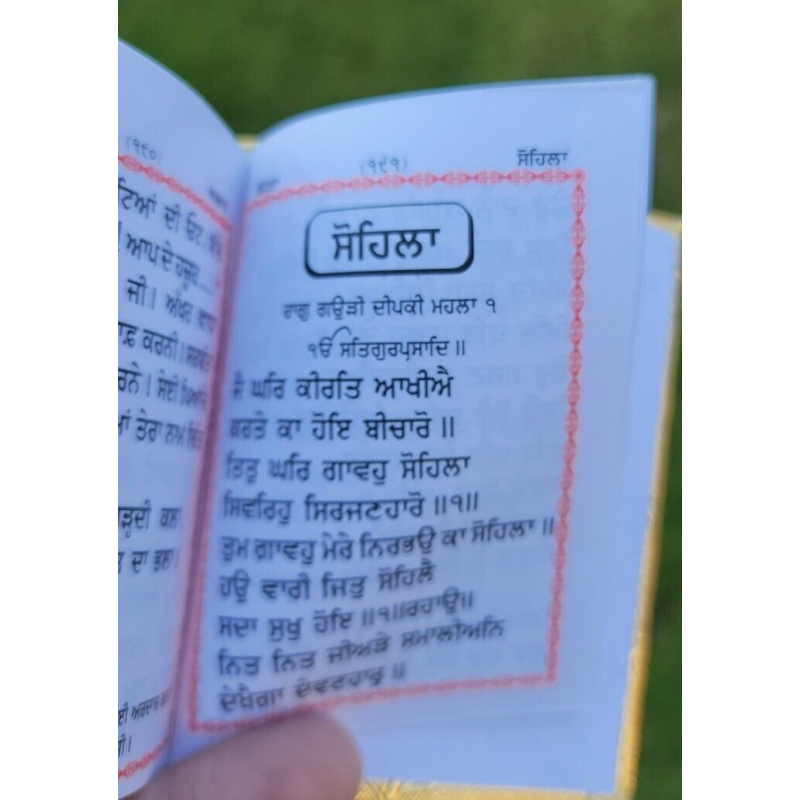 (੧੯੦)
ਟਿਆਂ ਦੀ ਓਟ,
ਆਪ ਦੇ ਹਜ਼ੂਰ
ਜੀ। ਅੱਖਰ
ਕਰਨੀ।
ਰਨੇ। ਸੇਈ ਪਿਆਰੇ
ਤੇਰਾ ਨਾਮ ਚਿੱਤ
ੜ੍ਹਦੀ ਕਲਾ,
ਦਾ ਭਲਾ।
ਅਰਦਾਸ
(੧੯੧) ਸੋਹਿਲਾ
ਸੋਹਿਲਾ
ਰਾਗੁ ਗਉੜੀ ਦੀਪਕੀ ਮਹਲਾ ੧
ੴ ਸਤਿਗੁਰਪ੍ਰਸਾਦਿ॥
ਜੈ ਘਰਿ ਕੀਰਤਿ ਆਖੀਐ
ਕਰਤੇ ਕਾ ਹੋਇ ਬੀਚਾਰੋ॥
ਤਿਤੁ ਘਰਿ ਗਾਵਹੁ ਸੋਹਿਲਾ
ਸਿਵਰਿਹੁ ਸਿਰਜਣਹਾਰੋ॥੧॥
ਤੁਮ ਗਾਵਹੁ ਮੇਰੇ ਨਿਰਭਉ ਕਾ ਸੋਹਿਲਾ॥
ਹਉ ਵਾਰੀ ਜਿਤੁ ਸੋਹਿਲੈ
ਸਦਾ ਸੁਖੁ ਹੋਇ॥੧॥ਰਹਾਉ॥
ਨਿਤ ਨਿਤ ਜੀਅੜੇ ਸਮਾਲੀਅਨਿ
ਦੇਖੈਗਾ ਦੇਵਣਹਾਰੁ॥